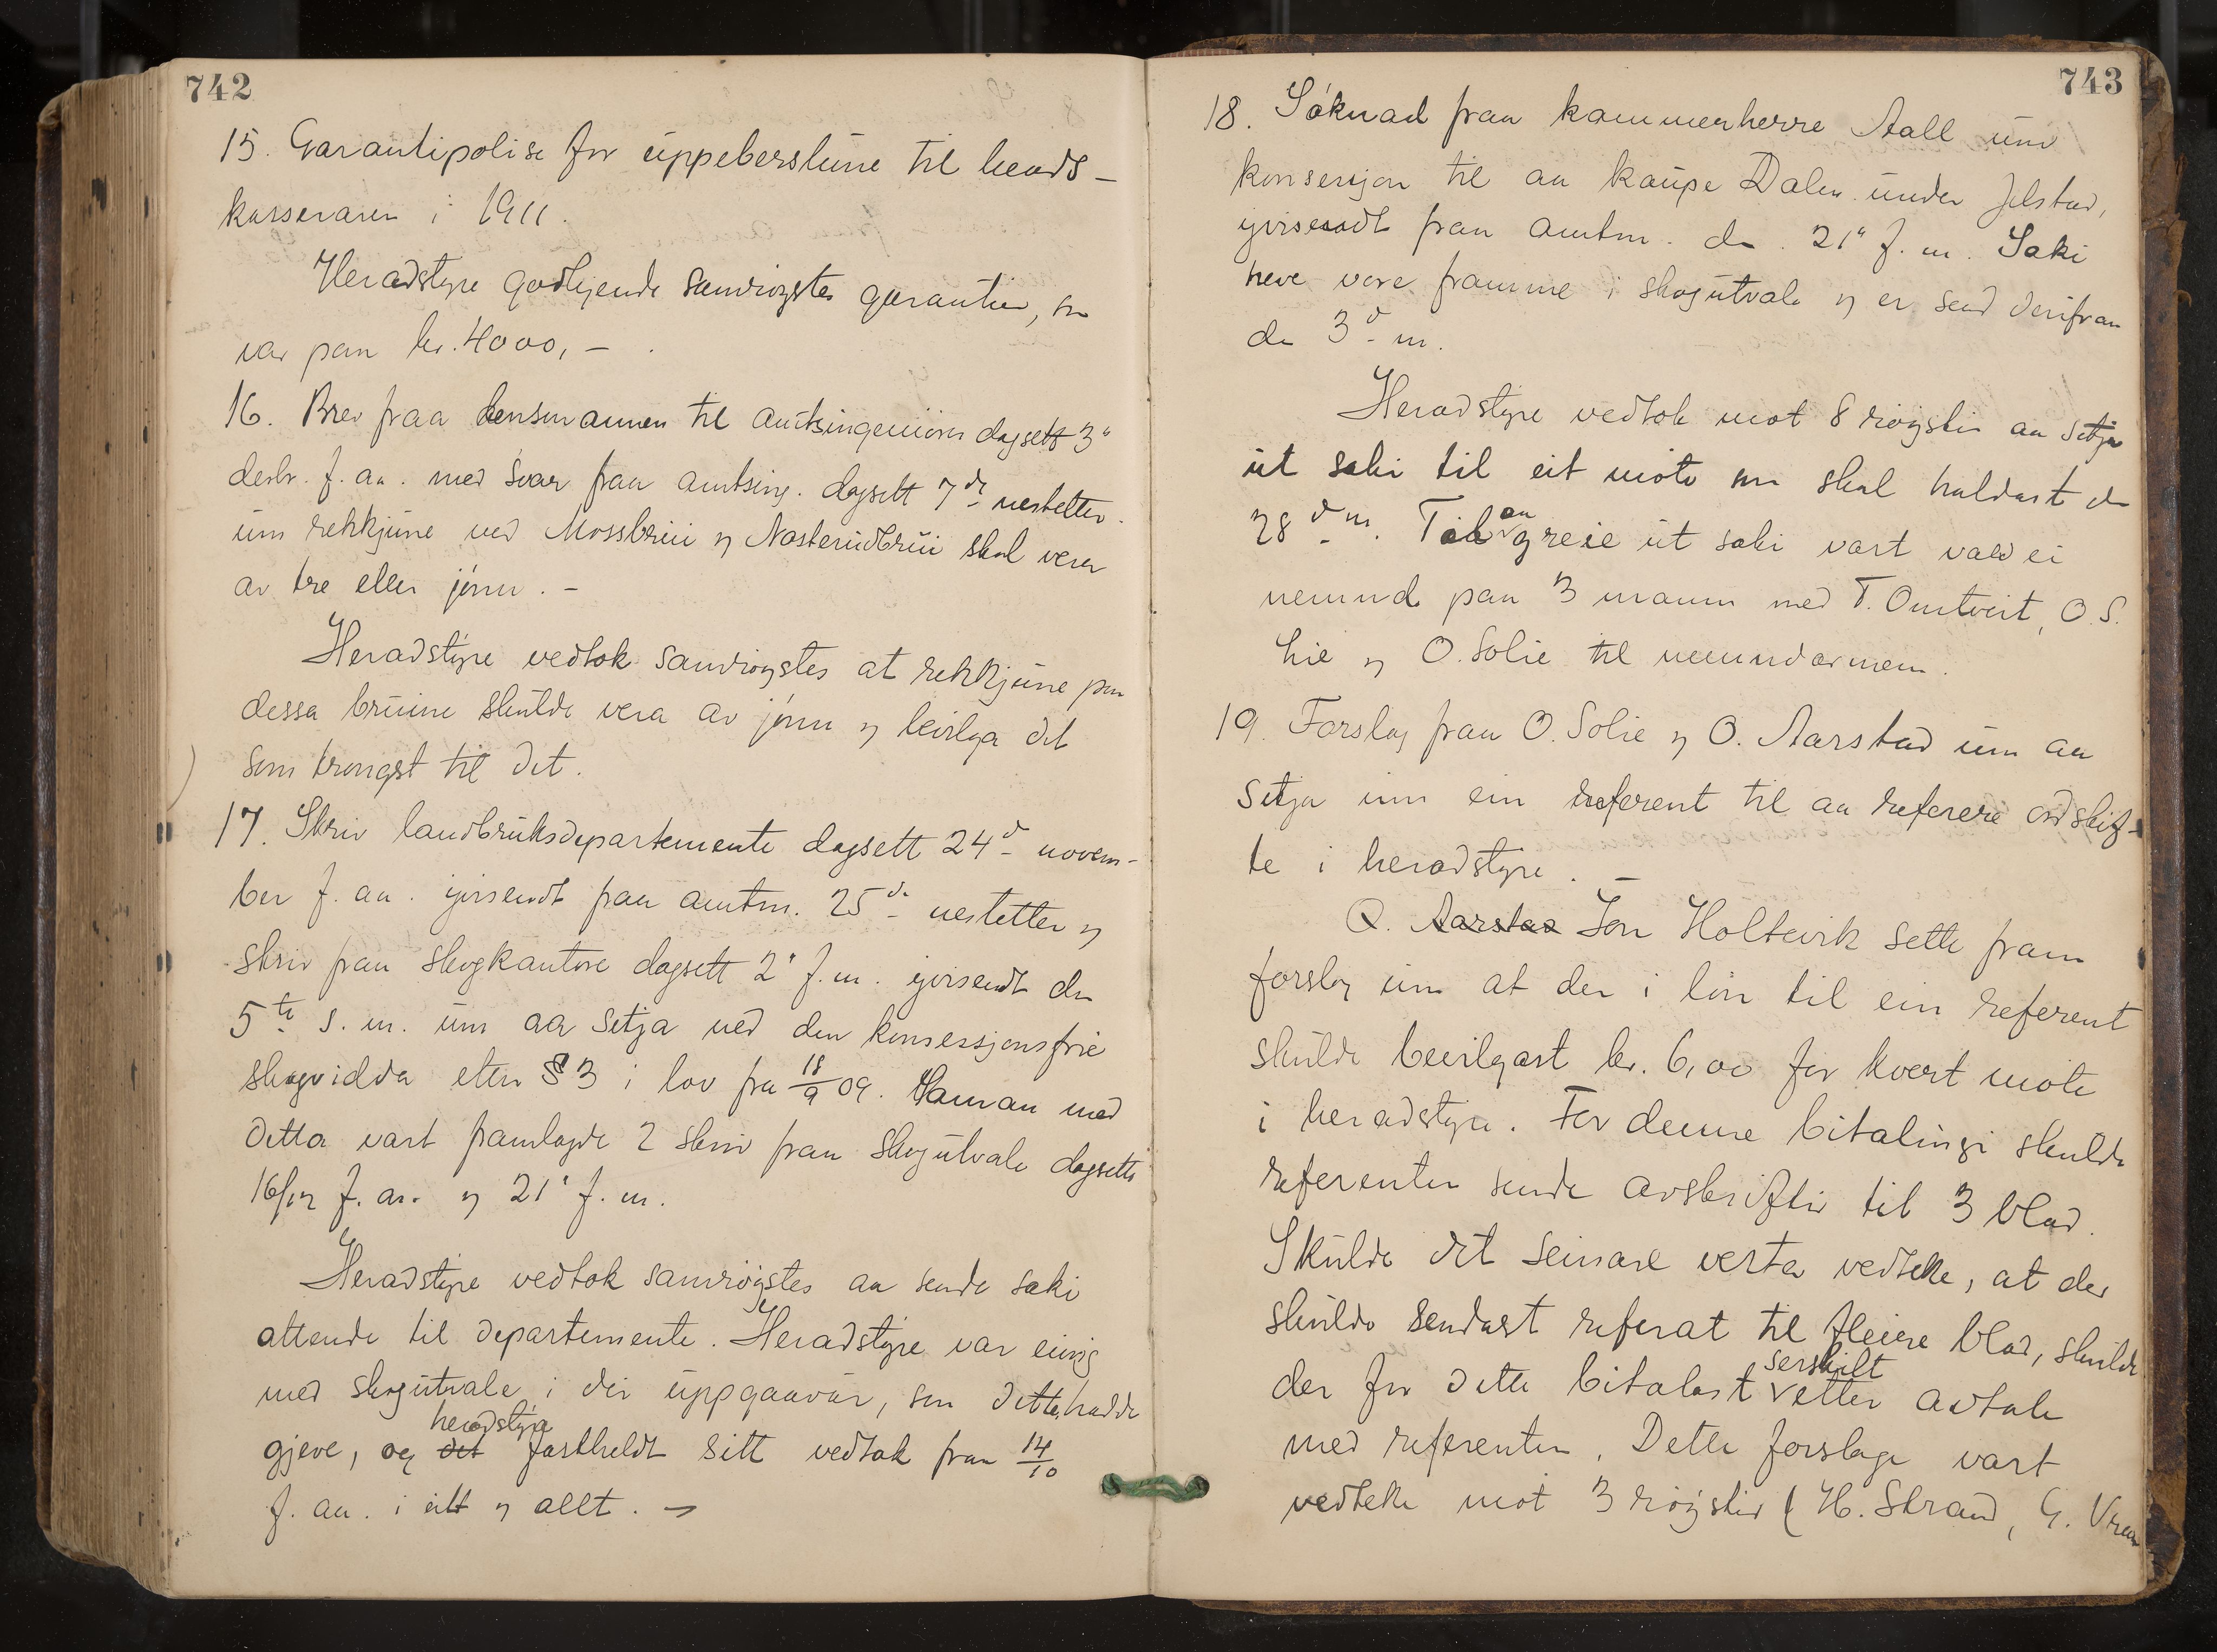 742
15. Garantipolise for uppeberslune til herads-
kasseraren i 1911.
Heradstyre godkjende samrøystes garantien, som
var paa kr. 4000,-.
16. Brev fraa lensmannen til amtsingeniøren dagsett 3"
desbr. f. aa. med svar fraa amtsing. dagsett 7de nestetter
um rekkjune ved Mossbrui og Nasterudbrui skal vera
av tre eller jønn. -
Heradstyre vedtok samrøystes at rekkjune paa
dessa bruine skulde vera av jønn og leivlga det
som trengst til det.
17. Skriv landbruksdepartemente dagsett 24d novem-
ber f. aa. yvisendt fraa amtm. 25de nestetter og
skriv fraa skogkantore dagsett 2' f. m. yvisendt den
5te s. m. um aa setja ned den konsessjonsfrie
skogvidda etter § 3 i lov fra 18/9 09. Saman med
detta vart framlagde 2 skriv fraa skogutvale dagsette
16/12 f. aa. og 21' f. m.
Heradstyre vedtok samrøystes aa senda saki
attende til departemente. Heradstyre var einig
med skogutvale i dei uppgaavur, som dette hadde
heradstyre
gjeve, og det fastheldt sitt vedtak fraa 14/10
f. aa. i eitt og allt. -
743
18. Søknad fraa kammerherre Aall um
konsesjon til aa kaupe Dalen under Jelstad,
yvisendt fraa amtm. den 21" f. m. Saki
heve vore framme i skogutvale og er send derifraa
den 3d m.
Heradstyre vedtok mot 8 røyster aa setja
ut saki til eit møte som skal haldast den
28d m. Til aa greie ut saki vart vald ei
nemnd paa 3 mann med T. Omtveit, O. S.
Lie og O. Solie til nemndarmenn.
19. Forslag fraa O. Solie og O. Aarstad um aa
setja inn ein referent til aa referere ordskif-
te i heradstyre. -
O. Aarstad Jon Holtevik sette fram
forslag um at der i løn til ein referent
skulde bevilgast kr. 6,00 for kvert møte
i heradstyre. For denne bitalingi skulde
referenten sende avskrifter til 3 blad.
Skulde det seinare verta vedteke, at der
skulde sendast referat til fleire blad, skulde
serskilt
der for dette bitalast etter avtale
med referenten. Dette forslage vart
vedteke mot 3 røyster (H. Strand, G. Vraa